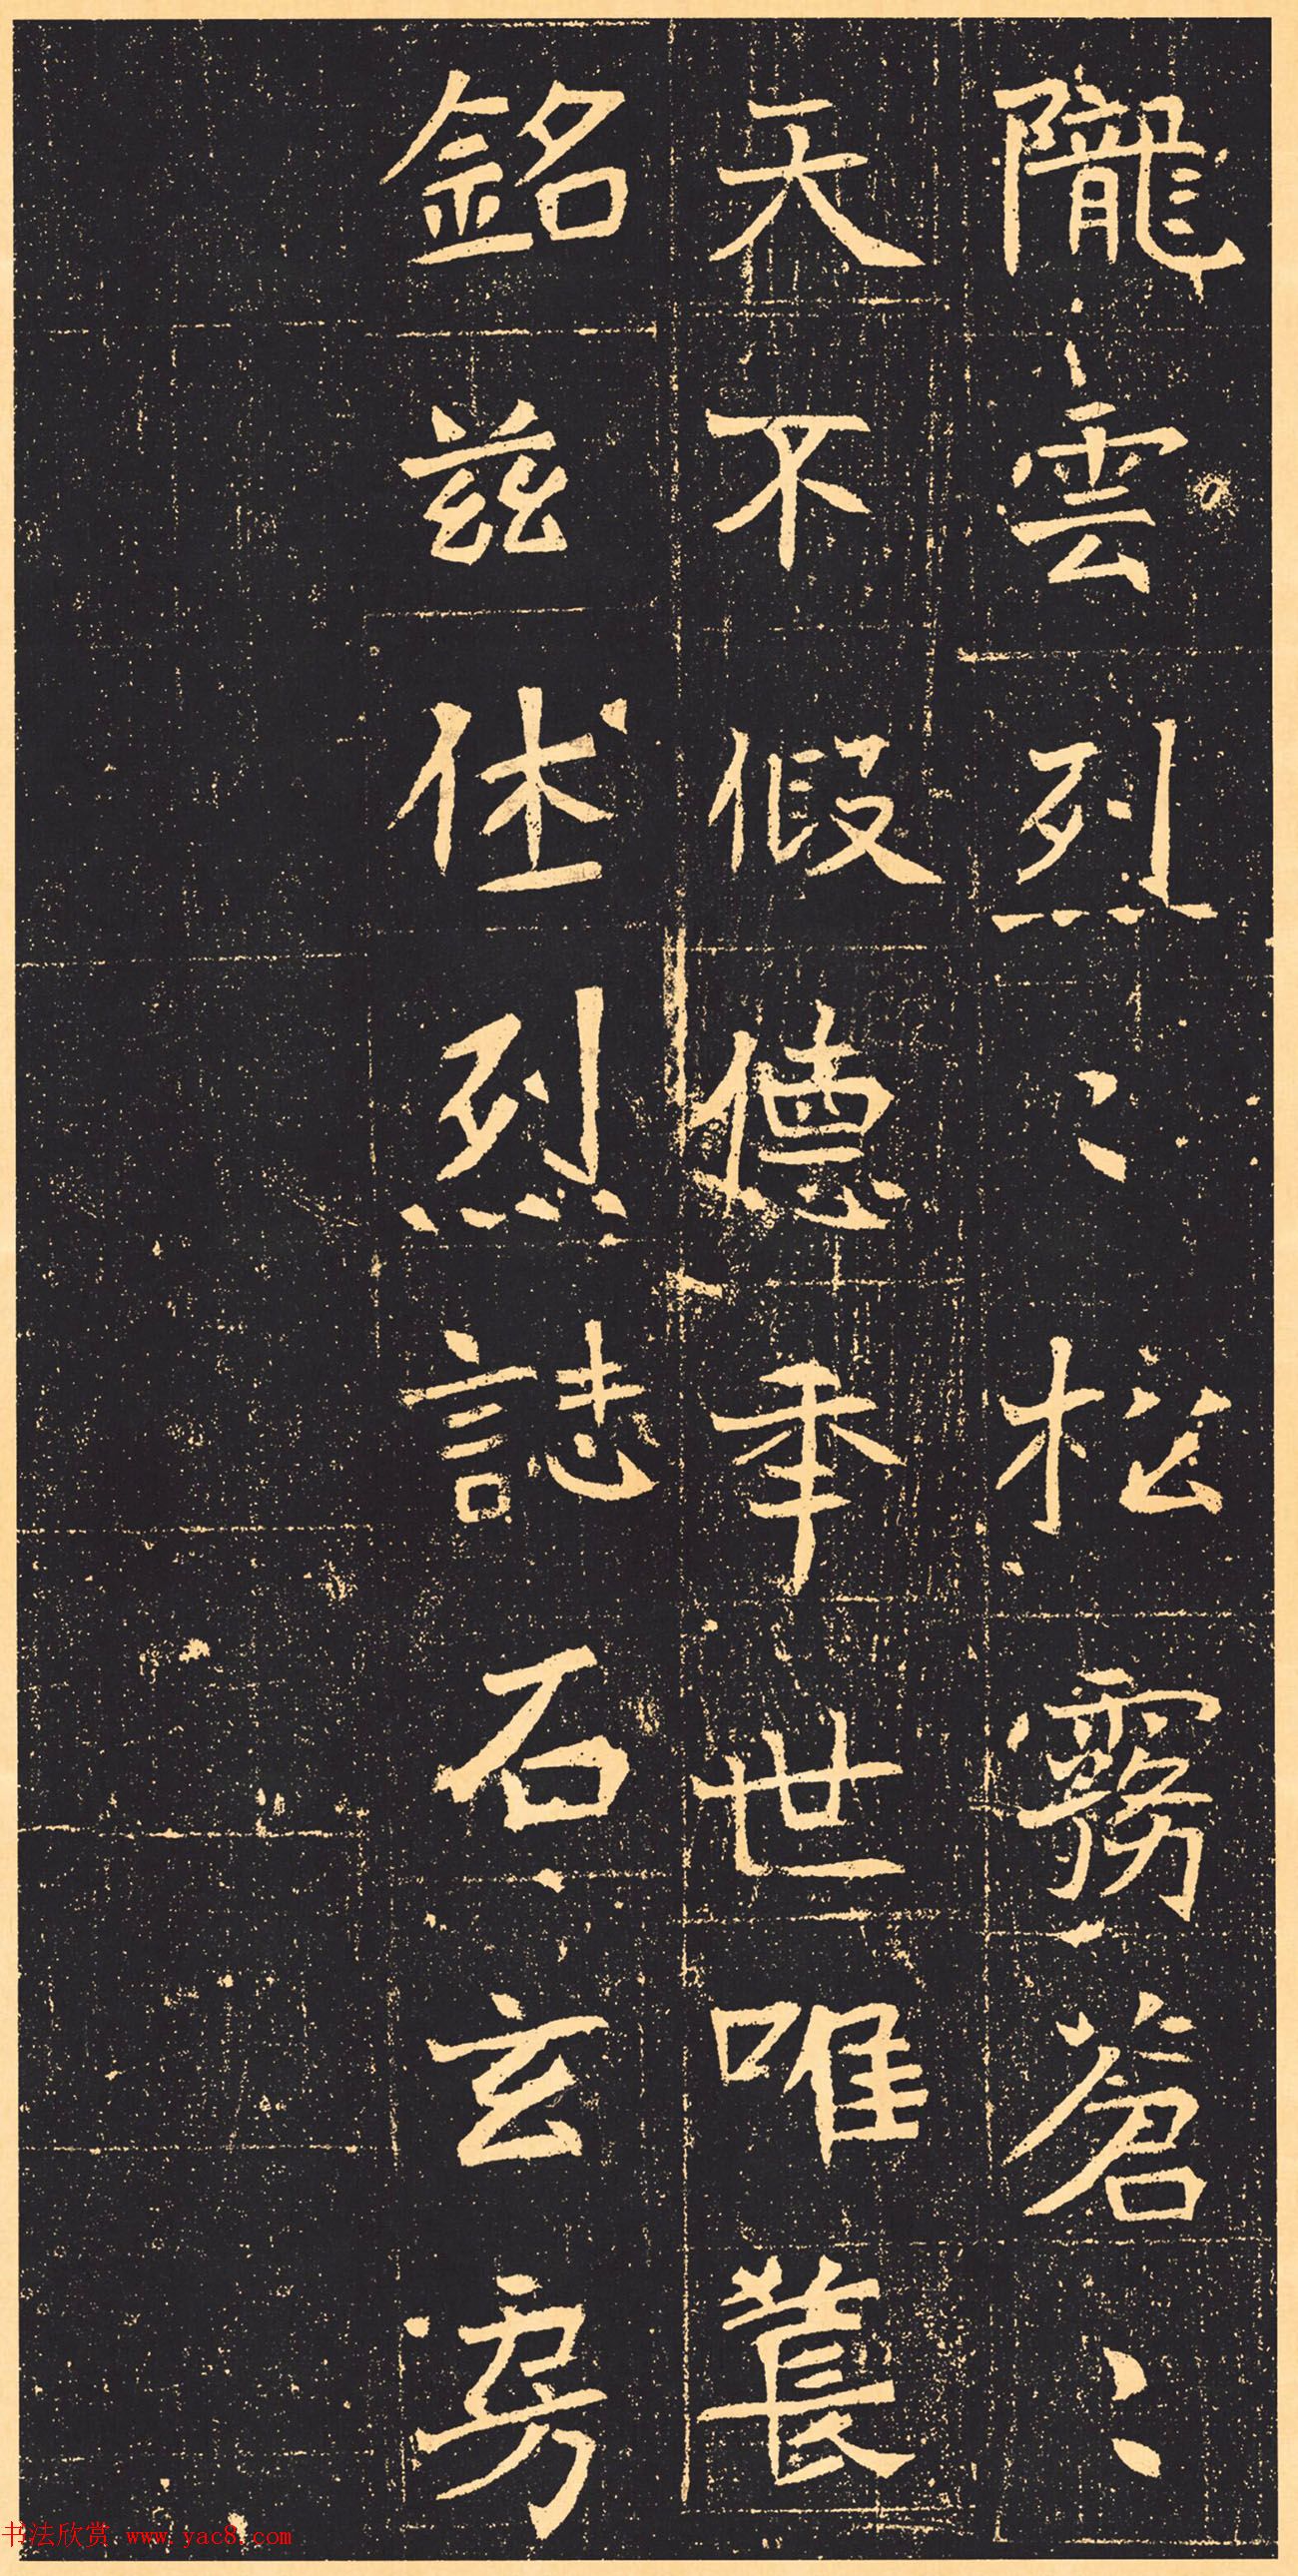 隴雲烈〻松霧蒼〻
天不假德年世唯長
銘茲休烈誌石玄房
书法欣赏 www.yac8.com